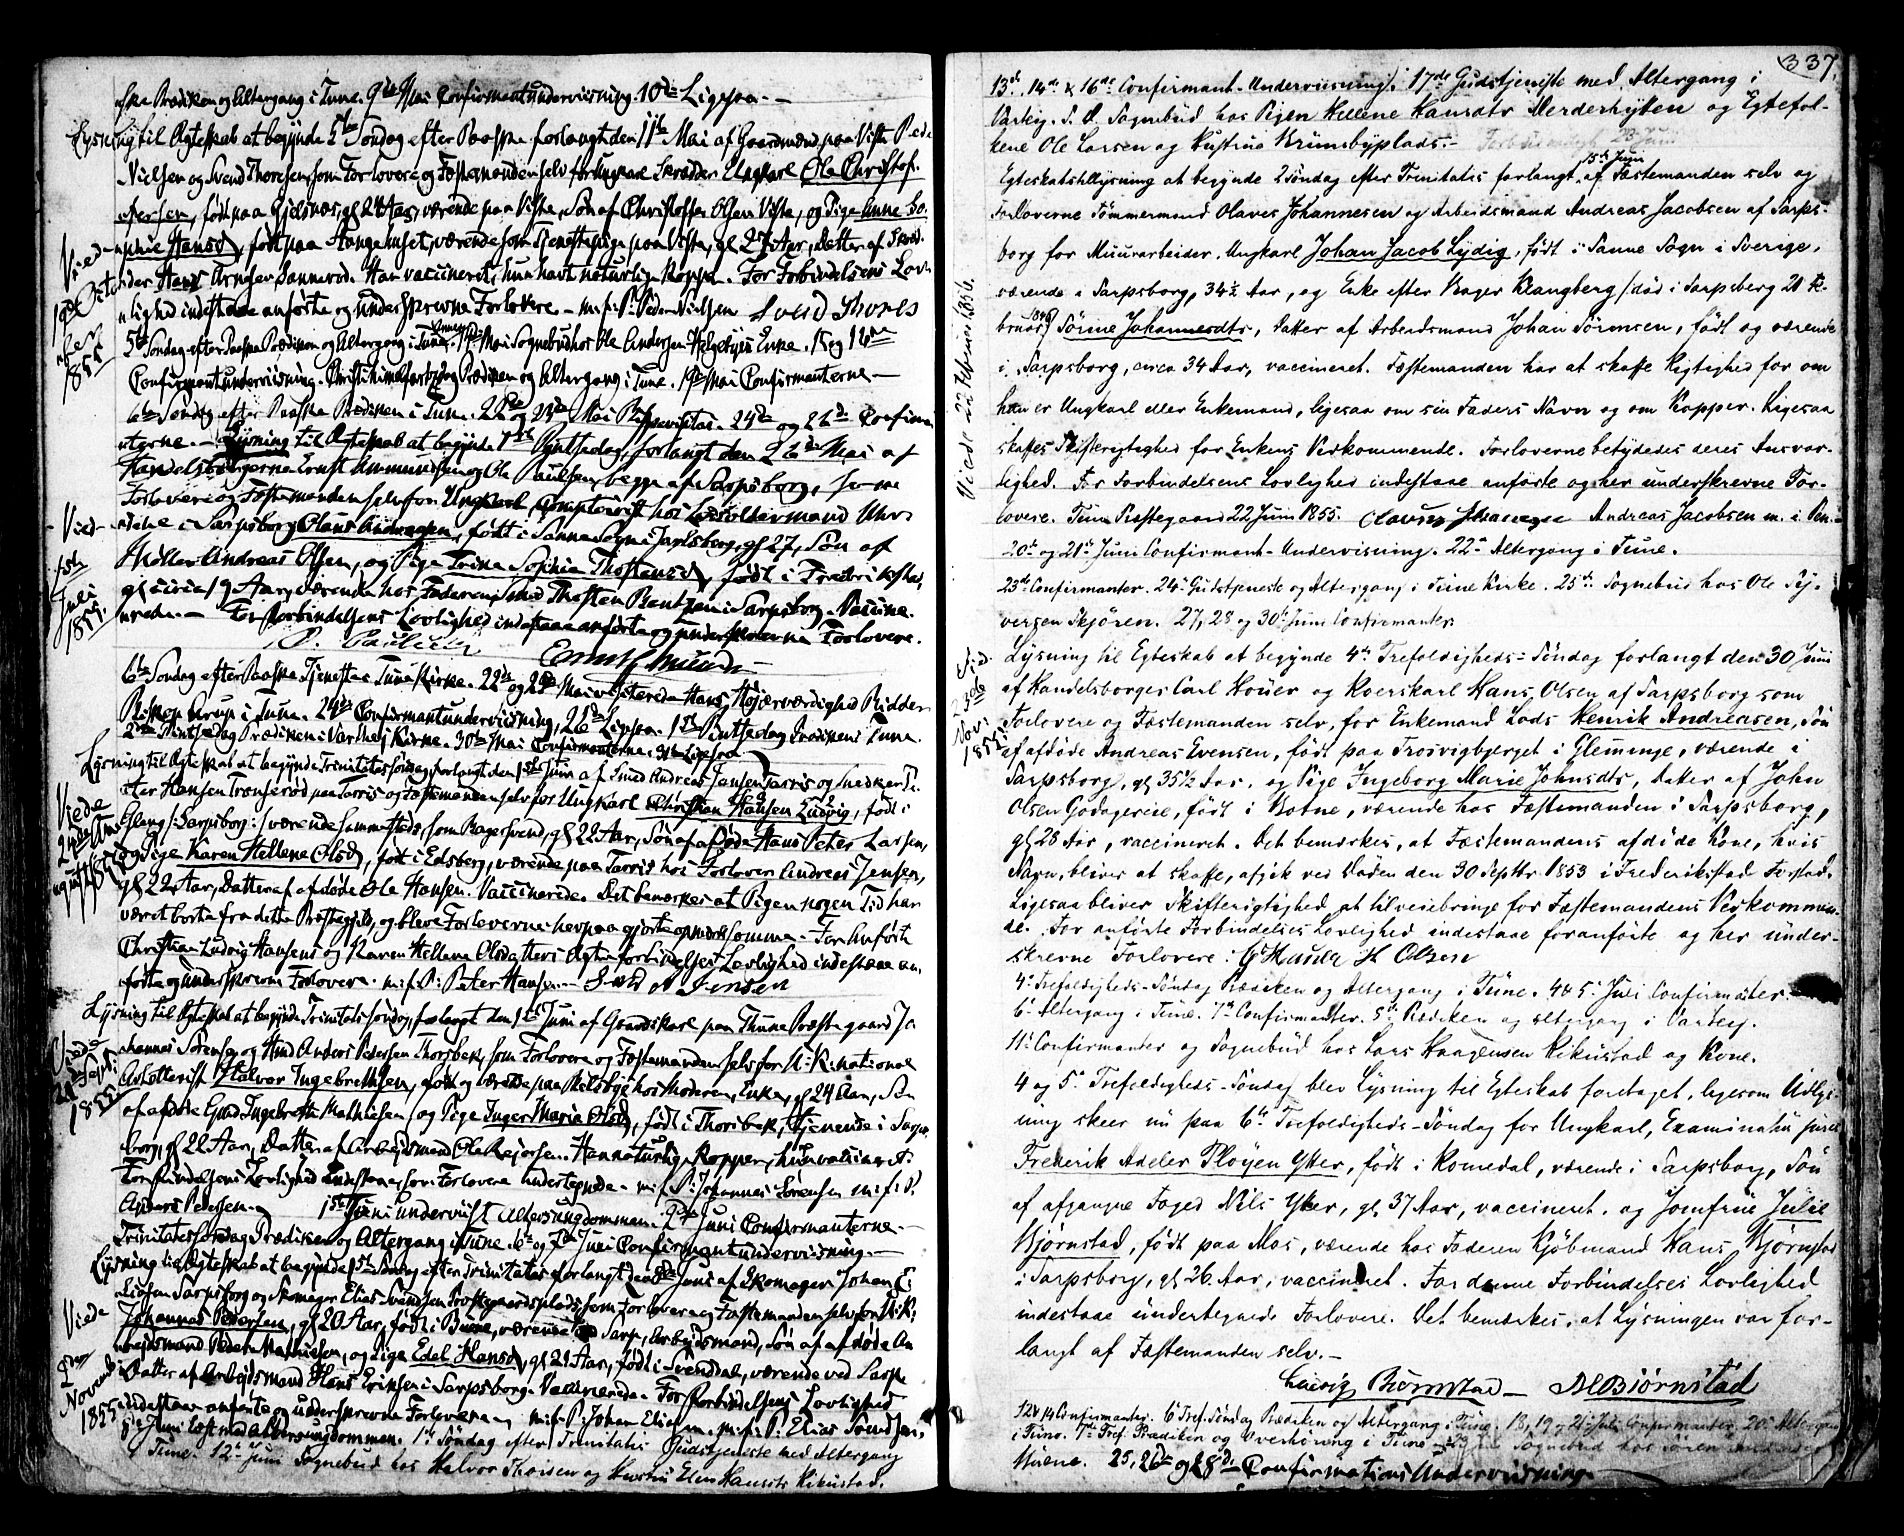 ske Prædiken og Altergang i Tune. 9de Mai Confirmantundervisning. 10de Ligesaa. —
Lysning til Ægteskab at begynde 5te Søndag efter Paaske forlangt den 11te Mai af Gaardmænd paa Viste Peder
Nielsen og Svend Thoresen, som Forlovere og Fæstemanden selv for Ungkarl Skrædder Ole Christof-
fersen, født paa Gjelsnæs, gl 24 Aar, værende paa Viste, Søn af Christoffer Olsen Viste, og Pige Anne So-
phie Hansd, født paa Haugehuset, værende som Tjenestepige paa Viste, gl 27 Aar, Datter af Skræd-
der Hans Sannerød. Han vaccineret, hun havt naturlig Kopper. For Forbindelsens Lov-
lighed indestaae anførte og underskrevne Forlovere — m.f.P. Peder Nielsen Svend Thores
Viede
19de Octo
ber
1855
5te Søndag efter Paaske Prædiken og Altergang i Tune. 14de Mai Sognebud hos Ole Andersen Helgebyes Enke. 15 og 16de
Confirmantundervisning. Christi himmelfartsdag Prædiken og Altergang i Tune. 19de Mai Confirmanterne —
6te Søndag efter Paaske Prædiken i Tune. 22de og 23de Mai Bispevisitas. 24de og 26de Confirma-
nterne. — Lysning til Ægteskab at begynde 1ste Pintsedag, forlangt den 26de Mai af
Handelsborgerne Ernst Ammundsen og Ole Paulsen, begge af Sarpsborg, som
Forlovere og Fæstemanden selv for Ungkarl Comptoirist hos
værende i Sarpsborg Olaus Andreasen, født i Sanne Sogn i Jarlsberg, gl 27, Søn af
Møller Andreas Olsen, og Pige Trine Sophie Thostensd, født i Fredrikshald,
gl circa 19 Aar, værende hos Faderen, Smed Thosten Bentzen i Sarpsborg. Vaccine-
rede. — For Forbindelsens Lovlighed indestaae anførte og underskrevne Forlovere.
O. Paulsen Ernst Amunds
Viede
Juli
1855.
6te Søndag efter Paaske Tjeneste i Tune Kirke. 22de og 23de Mai visiterede Hans Højærværdighed Ridder
Biskop Arup i Tune. 24de Confirmantundervisning, 26de Ligesaa. 1ste Pintsedag Prædiken i Tune.
2den Pintsedag Prædiken i Varteig Kirke. 30te Mai Confirmanterne. 31te Ligesaa
Lysning til Ægteskab at begynde Trinitatis Søndag, forlangt den 1ste Juni af Smed Andreas Jensen Tarris og Snedker Pe-
ter Hansen Tronserød paa Tarris og Fæstemanden selv for Ungkarl Christian Hansen Ludvig, født i
Gleng /: Sarpsborg:/ værende sammesteds, som Bagersvend, gl 22 Aar, Søn af afdøde Hans Peter Larsen,
og Pige Karen Hellene Olsd, født i Edsberg, værende paa Tarris hos Forlover Andreas Jensen,
gl 22 Aar, Datter af afdøde Ole Hansen. Vaccinerede. Det bemærkes at Pigen nogen Tid har
været borte fra dette Præstegjeld, og bleve Forloverne herpaa gjorte opmærksomme. — For Anførte
Christian Ludvig Hansens og Karen Hellene Olsdatters Ægteforbindelses Lovlighed indestaae an-
førte og underskrevne Forlovere. m.f.P. Peter Hansen. — Smd A Jensen
Viede
Lysning til Ægteskab at begynde Trinitatis Søndag, forlangt den 1ste Juni af Gaardskarl paa Thune Præstegaard Jo-
hannes Sørensen og Hmd Anders Pedersen Thorsbek, som Forlovere og Fæstemanden selv for U: K. national
Artillerist Halvor Ingebrethsen, født og værende paa hos Moderen, Enke, gl 24 Aar, Søn
af afdøde Gmd Ingebreth Mathiesen, og Pige Inger Maria Olsd, født i Thorsbek, tjenende i Sarps-
borg, gl 22 Aar, Datter af Arbejdsmand Ole Rejersen. Han naturlige Kopper, hun vaccineret.
Forbindelsens Lovlighed indestaaes, som Forlovere undertegnede. m.f.P. Johannes Sørensen m.f.P.
Anders Pedersen. 1ste Juni undervist Almuesungdommen. 2den Juni Confirmanterne.
Viede
1855
Trinitatis Søndag Prædiken og Altergang i Tune. 6te og 7de Juni Confirmantundervisning. —
Lysning til Ægteskab at begynde 1ste Søndag efter Trinitatis forlangt den 8de Juni af Skomager Johan E-
liasen Sarpsborg og Skomager Elias Svendsen Præstegaardsplads, som Forlovere og Fæstemanden selv for U.K.
Johannes Pedersen, gl 20 Aar, født i Buene, værende Sarp, Arbejdsmand, Søn af afdøde Ar-
bejdsmand Peder Mathiesen, og Pige Edel Hansd, gl 21 Aar, født i Svendal, værende ved Sarp
Datter af Arbejdsmand Hans Eriksen i Sarpsborg. Vaccinerede. For Forbindelsens Lovlighed
indestaae anførte og underskrevne Forlovere. m.f.P. Johan Eliasen. m.f.P. Elias Svendsen
8de Juni Løst med Almuesungdommen. 1ste Søndag efter Trinitatis Gudstjeneste med Altergang
i Tune. 12te Juni Sognebud hos Halvor Thoresen og Hustru Elen Hansdtr Rikustad.
Viede
2den
Novemb
1855
337.
13de, 14de & 16de Confirmant-Underviisning. 17de Gudstjeneste med Altergang i
Varteig. S. D. Sognebud hos Pigen Hellene Hansdtr Merderhytten og Egtefol-
kene Ole Larsen og Hustrue Brunsbyplads. —
Egteskabslysning at begynde 2 Søndag efter Trinitatis forlangt 15de Juni af Fæstemanden selv og
Forloverne Tømmermand Olaves Johannesen og Arbeidsmand Andreas Jacobsen af Sarps-
borg for Muurarbeider, Ungkarl Johan Jacob Lydig, født i Tanne Sogn i Sverige,
værende i Sarpsborg, 34½ Aar, og Enke efter Bager Klangberg /død i Sarpsborg 21 Fe-
bruar 1846/ Sørine Johannesdtr, Datter af Arbeidsmand Johan Sørensen, født og værende
i Sarpsborg, circa 34 Aar, vaccineret. Fæstemanden har at skaffe Rigtighed for om
han er Ungkarl eller Enkemand, ligesaa om sin Faders Navn og om Kopper. Ligesaa
skaffes Skifterigtighed for Enkens Vedkommende. Forloverne betydedes deres Ansvar-
lighed. For Forbindelsens Lovlighed indestaae anførte og her underskrevne For-
lovere. Tune Præstegaard 22 Juni 1855. Olavus Johanesen Andreas Jacobsen m. i. Pen.
Viede 22 Februar 1856.
20de og 21de Juni Confirmant-Undervisning. 22de Altergang i Tune.
23de Confirmanter. 24de Gudstjeneste og Altergang i Tune Kirke. 25de Sognebud hos Ole Sy-
versen Skjøren. 27, 28 og 30te Juni Confirmanter.
Lysning til Egteskab at begynde 4de Trefoldigheds-Søndag forlangt den 30 Juni
af Handelsborger Carl Houer og Koerskarl Hans Olsen af Sarpsborg som
Forlovere og Fæstemanden selv, for Enkemand Lods Henrik Andreasen, Søn
af afdøde Andreas Evensen, født paa Trosvigbjerget i Glemminge, værende i
Sarpsborg, gl 35½ Aar, og Pige Ingeborg Marie Johnsdtr, Datter af John
Olsen Godagereie, født i Botne, værende hos Fæstemanden i Sarpsborg,
gl 28 Aar, vaccineret. Det bemerkes, at Fæstemandens afdøde Kone, hvis
Navn bliver at skaffe, afgik ved Døden den 30 Septbr 1853 i Frederikstad Forstad.
Ligesaa bliver Skifterigtighed at tilveiebringe for Fæstemandens Vedkommen-
de. For anførte Forbindelses Lovlighed indestaae foranførte og her under-
skrevne Forlovere: H Olsen
Vied
Nov.
1855.
4de Trefoldigheds-Søndag Prædiken og Altergang i Tune. 4 & 5te Juli Confirmanter.
6te Altergang i Tune. 7de Confirmanter. 5te Prædiken og Altergang i Varteig.
11te Confirmanter og Sognebud hos Lars Haagensen Rikustad og Kone.
4 og 5te Trefoldigheds-Søndag blev Lysning til Egteskab foretaget, ligesom Udlys-
ning skeer nu paa 6te Trefoldigheds-Søndag for Ungkarl, Examinatus juris
Frederik Adeler Pløyen Yster, født i Romedal, værende i Sarpsborg, Søn
af afgangne Foged Nils Yster, gl 37 Aar, vaccineret, og Jomfrue Julie
Bjørnstad, født paa Mos, værende hos Faderen Kjøbmand Hans Bjørnstad
i Sarpsborg, gl 26 Aar, vaccineret. For denne Forbindelses Lovlighed
indestaae undertegnede Forlovere. Det bemærkes, at Lysningen var for-
langt af Fæstemanden selv. —
Ludvig Bjørnstad — Bjørnstad
12 & 14 Confirmanter. 6te Tref. Søndag Prædiken og Altergang i Tune. 18, 19 & 21 Juli Confirmanter. 20de Altergang
i Tune. 7de Tref. Prædiken og Overhøring i Tune. 23 Sognebud hos Søren
Buene. 25, 26de og 28de Confirmations Undervisning.